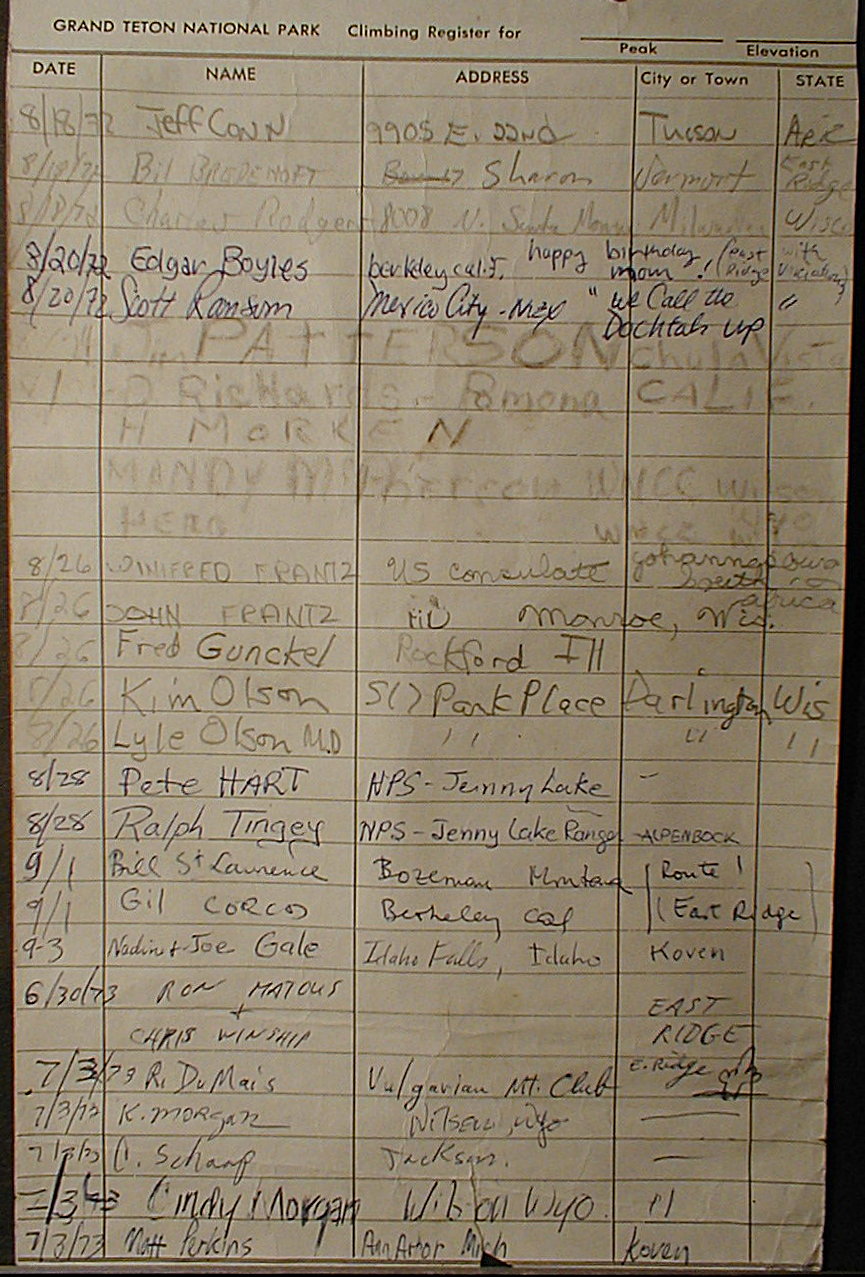 GRAND TETON NATIONAL PARK Climbing Register for
Peak Elevation
DATE NAME ADDRESS City or Town STATE
8/18/72 Jeff Conn 9905 E. 22nd Tucson Ariz
8/18/72 Bil Sharon Vermort East Ridge
8/18/72 Rodgers 8008 N. Wisc
8/20/72 Edgar Boyles berkley calif. happy birthday mom! (East Ridge with
8/20/72 Scott Ransom Mexico City - Mex " we Call the " )
Docktals up
Jim PATTERSON Chula Vista
D Richards - Pomona CALIF.
H MORKEN
MANDY WMCC
HERB
8/26 WINIFRED FRANTZ US consulate South Africa
8/26 JOHN FRANTZ MD Monroe, Wis.
8/26 Fred Gunckel Rockford Ill
8/26 Kim Olson 517 Park Place Darlington Wis
8/26 Lyle Olson M.D " " "
8/28 Pete HART NPS - Jenny Lake -
8/28 Ralph Tingey NPS - Jenny Lake Ranger - ALPENBOCK
9/1 Bill St Lawrence Bozeman Montana (Route 1
9/1 Gil CORCOS Berkeley Cal (East Ridge)
9-3 Nadin + Joe Gale Idaho Falls, Idaho Koven
6/30/73 RON MATOUS
+ EAST
CHRIS WINSHIP RIDGE
7/3/73 R. DuMais Vulgarian Mt. Club E. Ridge
7/3/73 K. MORGAN Wilson, Wyo
7/3/73 C. Schaap Jackson. —
7/3/73 Cindy Morgan Wilson Wyo. "
7/3/73 Matt Perkins Ann Arbor Mich Koven